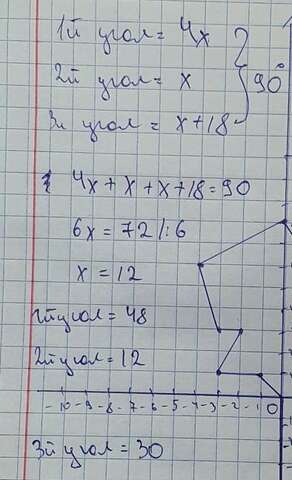 1й угол = 4x
2й угол = x
3й угол = x+18
90°
4x+x+x+18=90
6x=72 /:6
x=12
1й угол=48
2й угол=12
-10 -9 -8 -7 -6 -5 -4 -3 -2 -1 0
3й угол=30